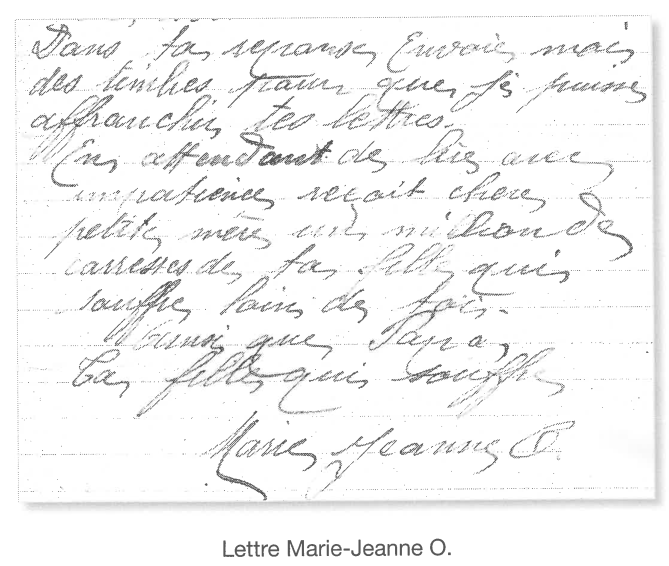 Dans ta reponse Envoie moi
des timbres pour que je puisse
affranchir tes lettres.
En attendant de lire avec
impatience reçoit chere
petite mère un million de
carresses de ta fille qui
souffre loin de toi.
Ainsi que Papa,
Ta fille qui souffre
Marie Jeanne O.
Lettre Marie-Jeanne O.